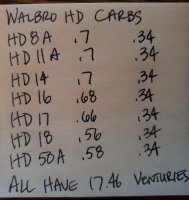 WALBRO HD CARBS
HD 8 A .7 .34
HD 11 A .7 .34
HD 14 .7 .34
HD 16 .68 .34
HD 17 .66 .34
HD 18 .56 .34
HD 50 A .58 .34
ALL HAVE 17.46 VENTURIES